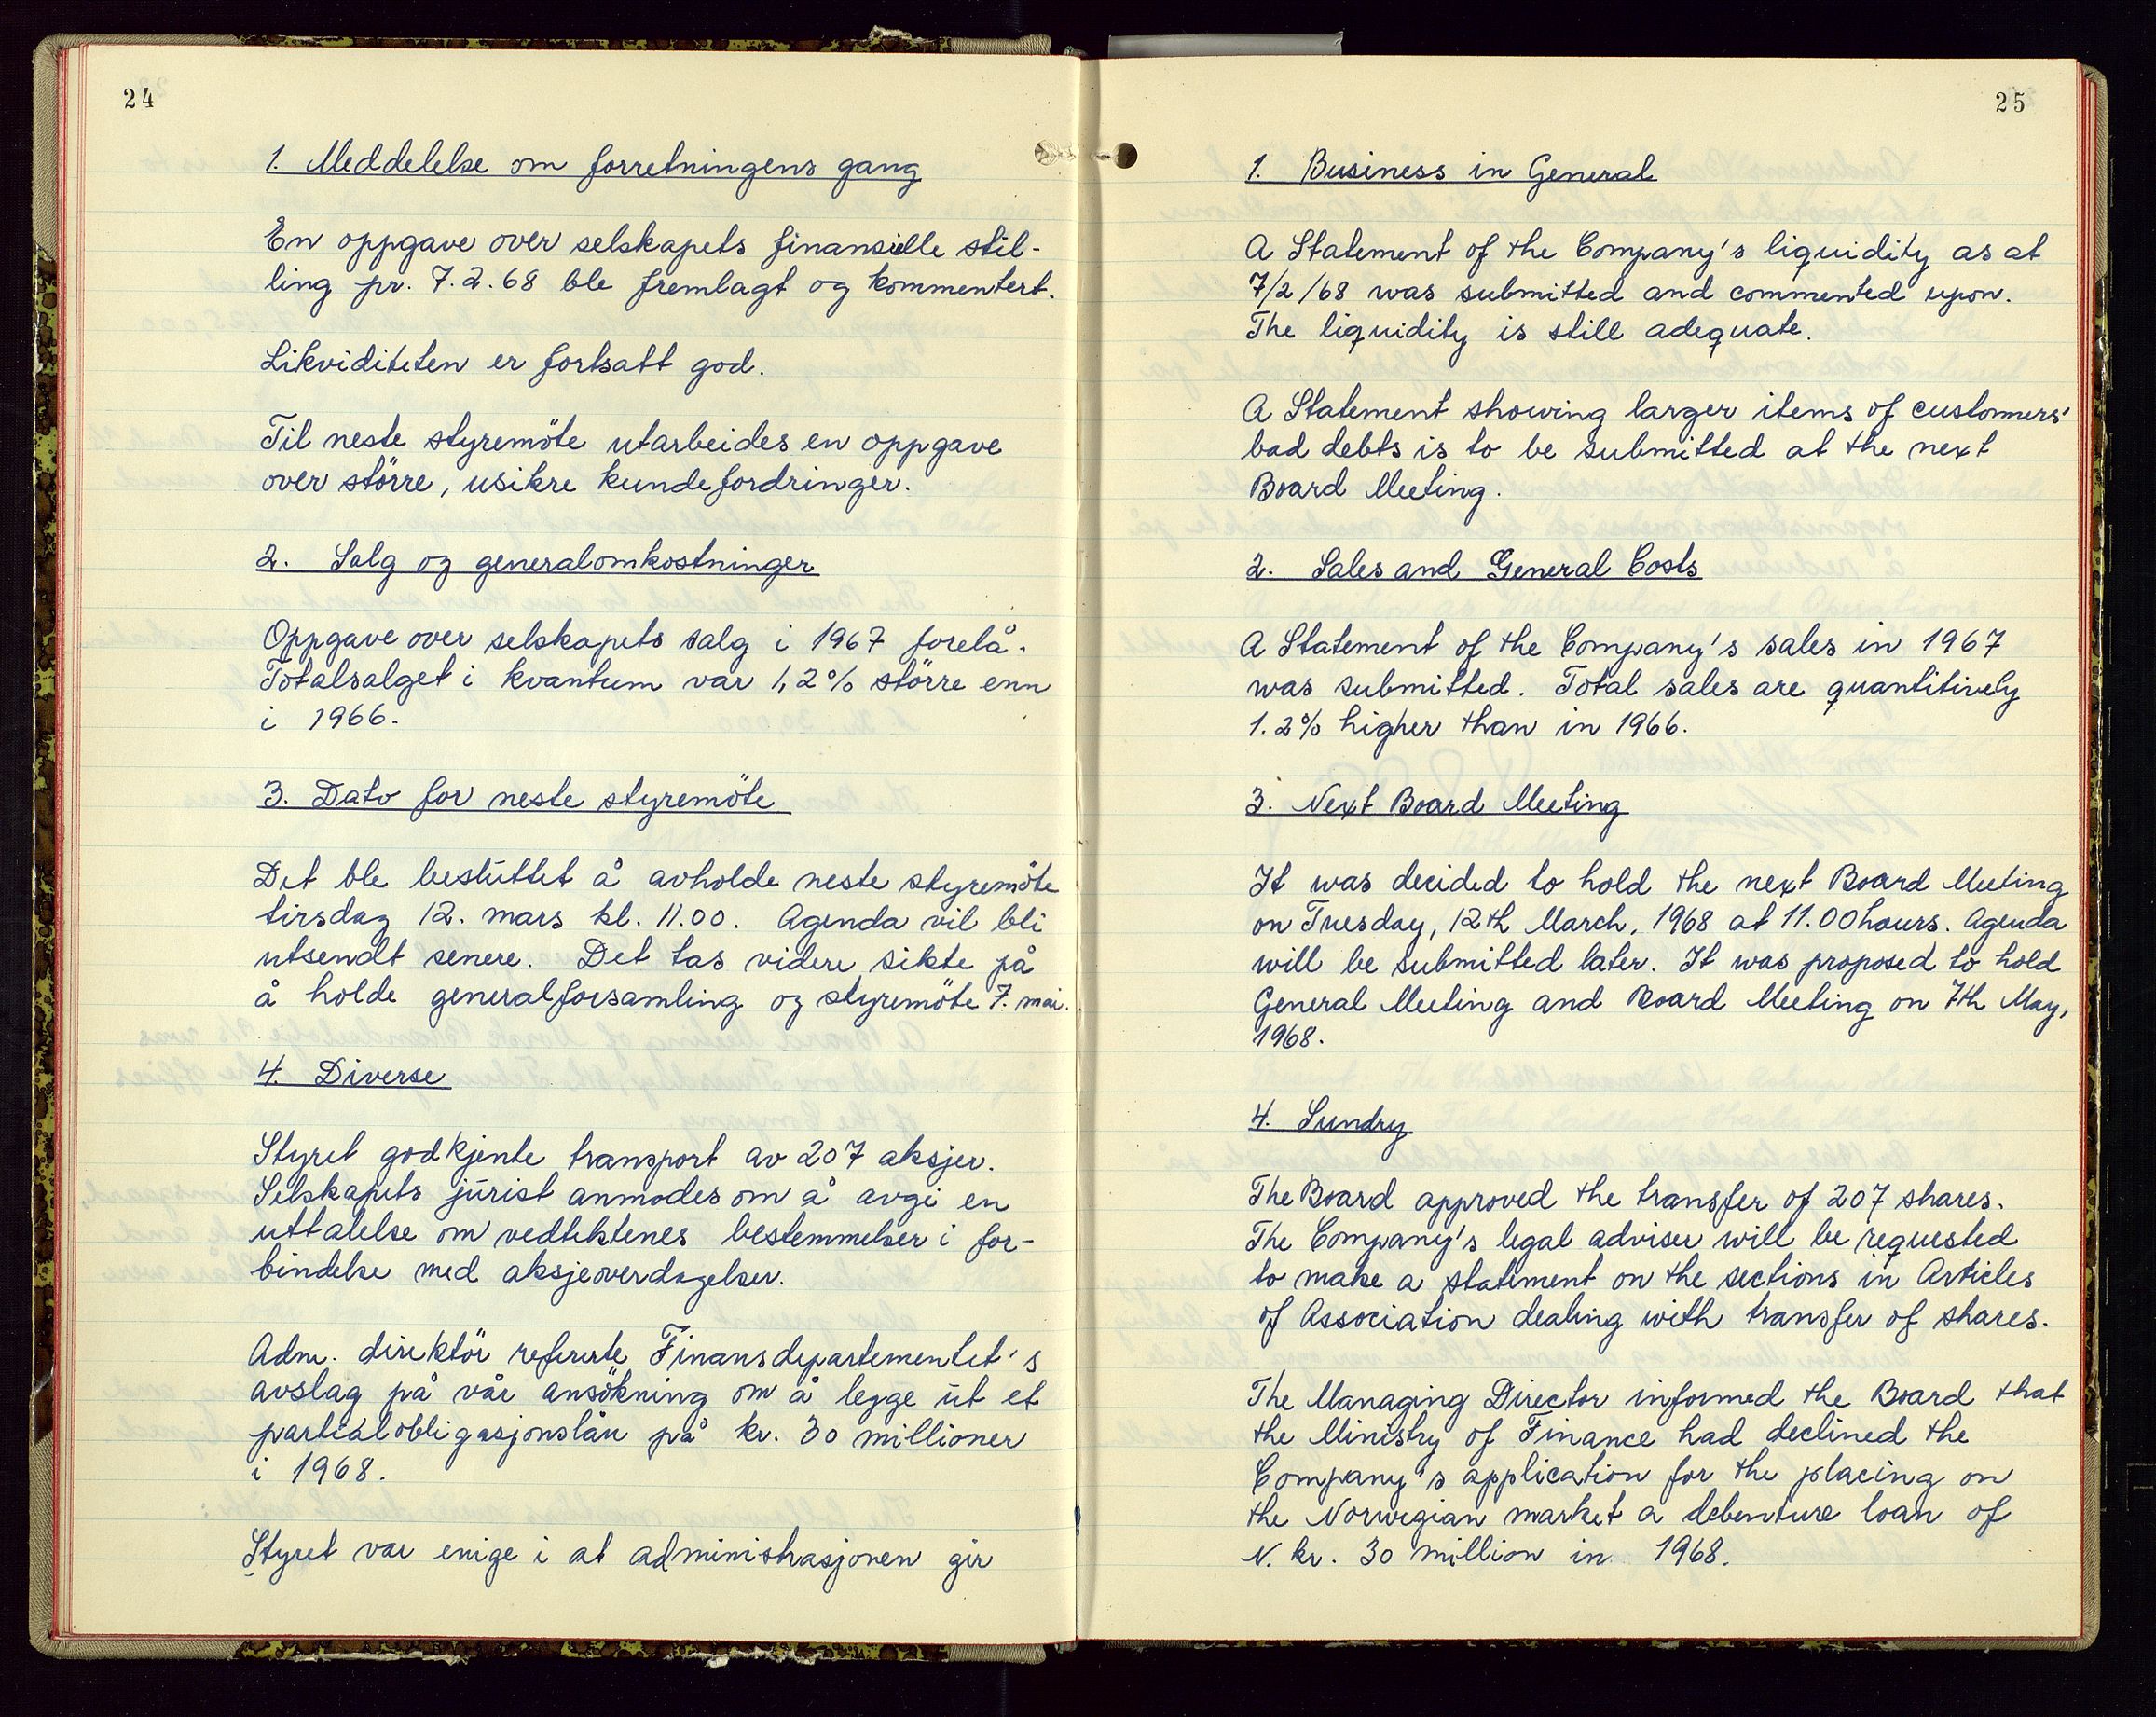 24
1. Meddelelse om forretningens gang
En oppgave over selskapets finansielle stil-
ling pr. 7.2.68 ble fremlagt og kommentert.
Likviditeten er fortsatt god.
Til neste styremöte utarbeides en oppgave
over större, usikre kundefordringer.
2. Salg og generalomkostninger
Oppgave over selskapets salg i 1967 forelå.
Totalsalget i kvantum var 1,2% större enn
i 1966.
3. Dato for neste styremöte
Det ble besluttet å avholde neste styremöte
tirsdag 12. mars kl. 11.00. Agenda vil bli
utsendt senere. Det tas videre sikte på
å holde generalforsamling og styremöte 7. mai.
4. Diverse
Styret godkjente transport av 207 aksjer.
Selskapets jurist anmodes om å avgi en
uttalelse om vedtektenes bestemmelser i for-
bindelse med aksjeoverdragelser.
Adm. direktör refererte Finansdepartementet's
avslag på vår ansökning om å legge ut et
partialobligasjonslån på kr. 30 millioner
i 1968.
Styret var enige i at administrasjonen gir
25
1. Business in General
A Statement of the Company's liquidity as at
7/2/68 was submitted and commented upon.
The liquidity is still adequate.
A Statement showing larger items of customers'
bad debts is to be submitted at the next
Board Meeting.
2. Sales and General Costs
A Statement of the Company's sales in 1967
was submitted. Total sales are quantitively
1.2% higher than in 1966.
3. Next Board Meeting
It was decided to hold the next Board Meeting
on Tuesday, 12th March, 1968 at 11.00 hours. Agenda
will be submitted later. It was proposed to hold
General Meeting and Board Meeting on 7th May,
1968.
4. Sundry
The Board approved the transfer of 207 shares.
The Company's legal adviser will be requested
to make a statement on the sections in Articles
of Association dealing with transfer of shares.
The Managing Director informed the Board that
the Ministry of Finance had declined the
Company's application for the placing on
the Norwegian market a debenture loan of
N. kr. 30 million in 1968.